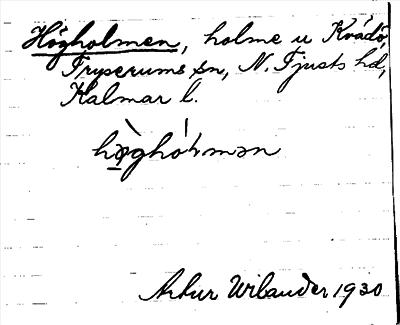 Högholmen, holme u Kvädö,
Fryserums sn, N. Tjusts hd,
Kalmar l.
hø̀ghól'mən
Artur Wilander 1930